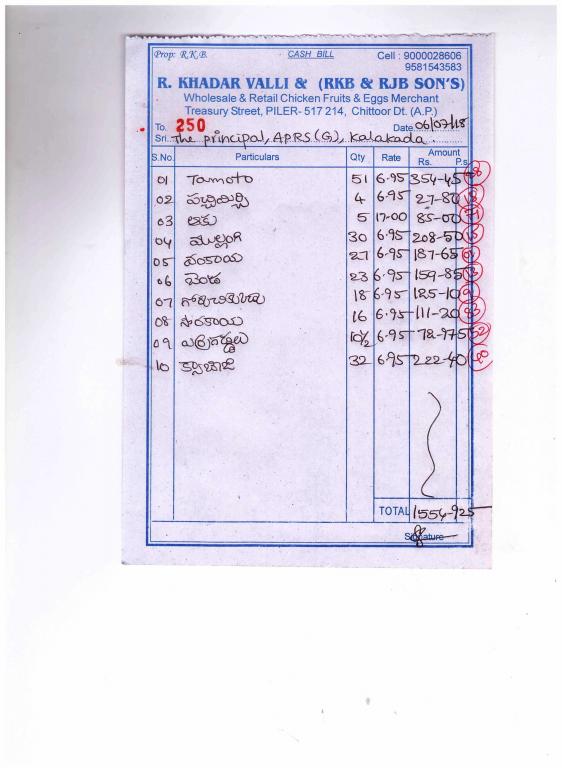 Prop: R.K.B. CASH BILL Cell : 9000028606
9581543583
R. KHADAR VALLI & (RKB & RJB SON'S)
Wholesale & Retail Chicken Fruits & Eggs Merchant
Treasury Street, PILER- 517 214, Chittoor Dt. (A.P.)
To. 250 Date 06/07/18
Sri. The principal, APRS(G), Kalakada.
S.No. Particulars Qty Rate Amount
Rs. P.s.
01 Tamoto 51 6.95 354-45
02 పచ్చిమిర్చి 4 6.95 27-80
03 ఆకు 5 17-00 85-00
04 ముల్లంగి 30 6.95 208-50
05 వంకాయ 27 6.95 187-65
06 బెండ 23 6.95 159-85
07 గోరుచిక్కుడు 18 6.95 125-10
08 సొరకాయ 16 6.95 111-20
09 ఎర్రగడ్డలు 10½ 6.95 72-975
10 32 6.95 222-40
TOTAL 1554-925
Signature